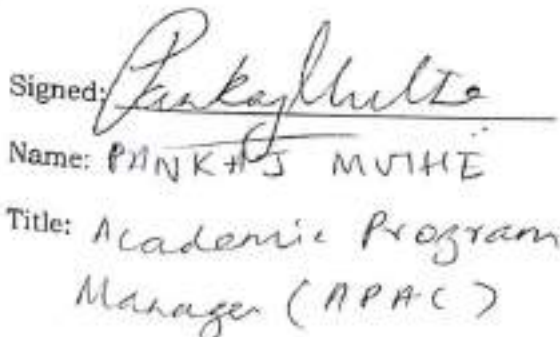 Signed:
Name: PANKAJ
Title: Academic Program
Manager (APAC)